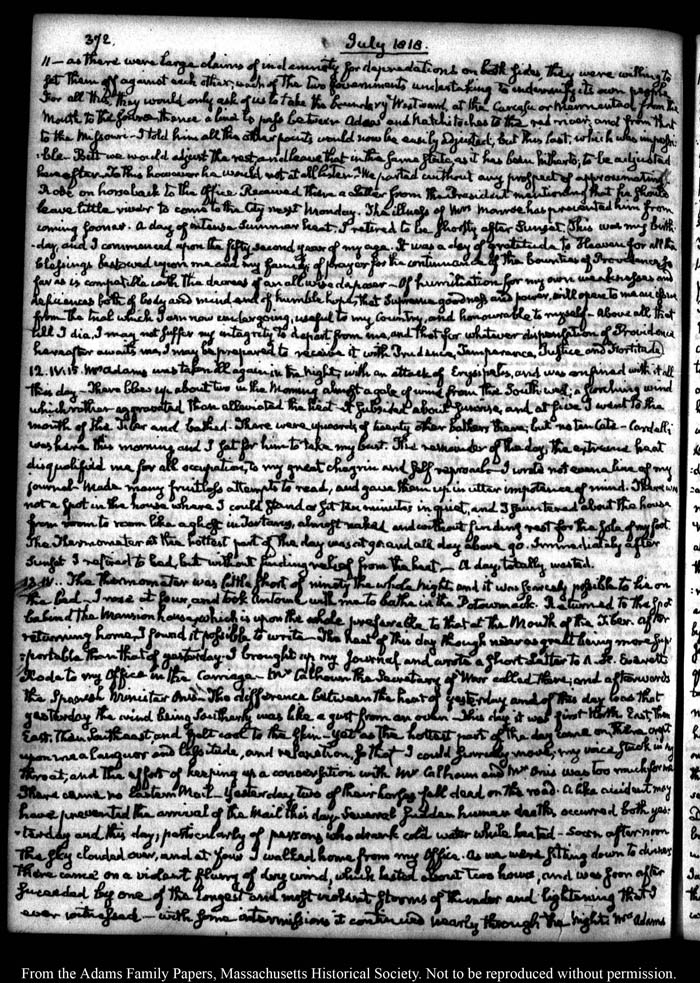 372. July 1818.
11 — as there were large claims of indemnity for depredations on both sides, they were willing to
set them off against each other; each of the two Governments undertaking to indemnify its own people.
For all this, they would only ask of us to take the boundary Westward, at the Carcasu or Marmentao from the
Mouth to the source thence a line to pass between Adeas and Natchitoches to the red river, and from that
to the Missouri — I told him all the other points would now be easily adjusted, but this last, which was impossi-
:ble — But we would adjust the rest, and leave that in the same state, as it has been hitherto, to be adjusted
hereafter. To this however he would not at all listen. We parted without any prospect of approximating.
Rode on horseback to the Office. Received there a Letter from the President mentioning that he should
leave little river to come to the City next Monday. The illness of Mrs Monroe has prevented him from
coming sooner. A day of intense Summer heat. I retired to bed shortly after Sunset. This was my birth-
-day, and I commenced upon the fifty second year of my age. It was a day of gratitude to Heaven for all the
blessings bestowed upon me and my family; of prayer for the continuance of the bounties of Providence, so
far as is compatible with the decrees of an allwise disposer — Of humiliation for my own weaknesses and
deficiences both of body and mind and of humble hope, that Supreme goodness and power, will open to me an issue
from the trial which I am now undergoing, useful to my Country, and honourable to myself — Above all that
till I die, I may not suffer my integrity to depart from me, and that for whatever dispensation of Providence
hereafter awaits me, I may be prepared to receive it with Prudence, Temperance, Justice and Fortitude.
12. IV:15. Mrs Adams was taken ill again in the Night, with an attack of Erysipelas, and was confined with it all
this day — There blew up about two in the Morning almost a gale of wind from the South west; a scorching wind
which rather aggravated than alleviated the heat — It subsided about Sunrise, and at five I went to the
mouth of the Tiber and bathed. There were upwards of twenty other bathers there; but no ten late — Cardelli
was here this morning and I sat for him to take my bust. The remainder of the day, the extreme heat
disqualified me for all occupation, to my great chagrin and self reproach — I wrote not even a line of my
journal — Made many fruitless attempts to read, and gave them up in utter impotence of mind. There was
not a spot in the house where I could stand or sit ten minutes in quiet, and I sauntered about the house
from room to room like a ghost in Tartarus, almost naked and without finding rest for the sole of my foot.
The Thermometer at the hottest part of the day was at 90 and all day above 90. Immediately after
Sunset I retired to bed, but without finding relief from the heat — A day totally wasted.
13. IV.. The thermometer was little short of ninety the whole Night, and it was scarcely possible to lie on
the bed — I rose at four, and took Antoine with me to bathe in the Potowmack. Returned to the spot
behind the Mansion house, which is upon the whole preferable to that at the Mouth of the Tiber. After
returning home, I found it possible to write — The heat of this day though near as great being more sup-
:portable than that of yesterday. I brought up my Journal, and wrote a short Letter to A. H. Everett
Rode to my Office in the Carriage — Mr Calhoun the Secretary of War called there, and afterwards
the Spanish Minister Onis — The difference between the heat of yesterday and of this day was that
yesterday the wind being Southerly was like a gust from an oven — This day it was first North East, then
East, then Southeast, and felt cool to the skin — Yet as the hottest part of the day came on, there crept
upon me a languor and lassitude, and relaxation, so that I could scarcely move; my voice stuck in my
throat; and the effort of keeping up a conversation with Mr Calhoun and Mr Onis was too much for me
There came no Eastern Mail — Yesterday two of their horses fell dead on the road. A like accident may
have prevented the arrival of the Mail this day. Several sudden human deaths occurred both yes-
-terday and this day; particularly of persons who drank cold water while heated — Soon after noon
the sky clouded over, and at four I walked home from my Office. As we were sitting down to dinner
there came on a violent flurry of dry wind, which lasted about two hours, and was soon after
succeeded by one of the longest and most violent storms of thunder and lightening that I
ever witnessed — with some intermissions it continued nearly through the night. Mrs Adams
From the Adams Family Papers, Massachusetts Historical Society. Not to be reproduced without permission.